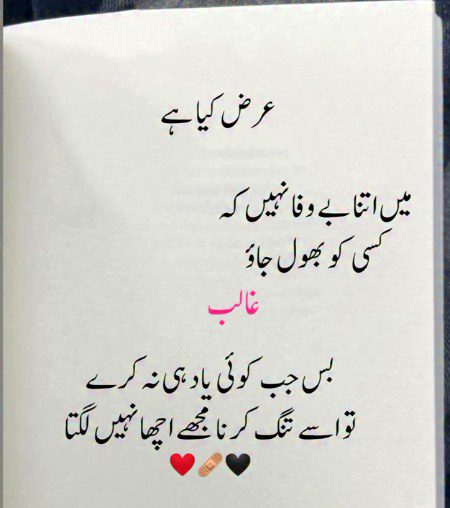 عرض کیا ہے
میں اتنا بے وفا نہیں کہ
کسی کو بھول جاؤ
غالب
بس جب کوئی یاد ہی نہ کرے
تو اسے تنگ کرنا مجھے اچھا نہیں لگتا
❤️🩹🖤